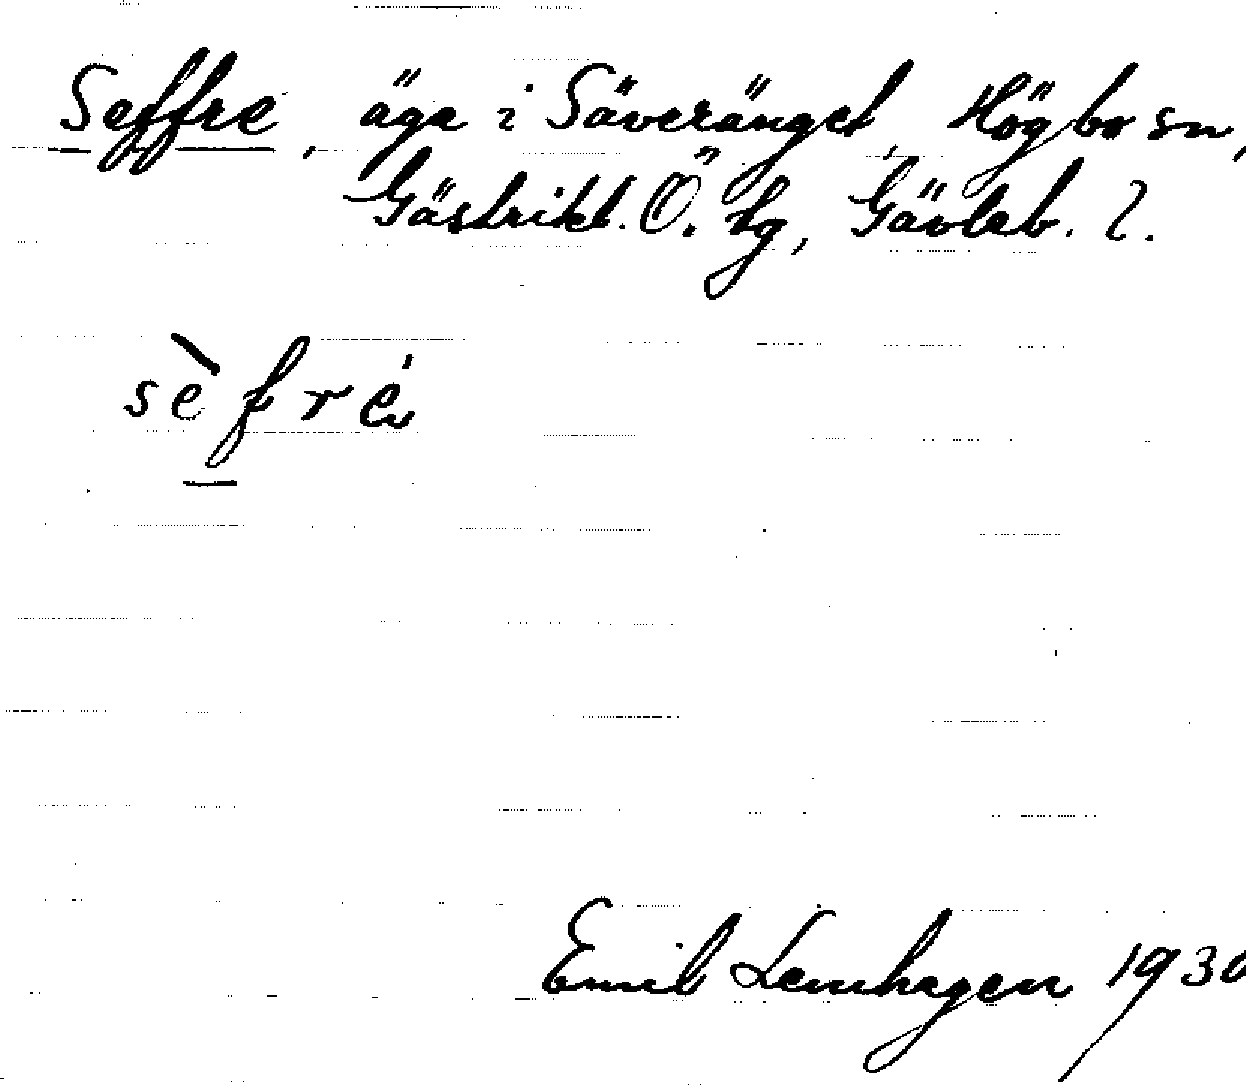 Seffre, äga i Säveränget, Högbo sn,
Gästrikl. Ö. tg, Gävleb. l.
sèfré
Emil Lenhagen 1930